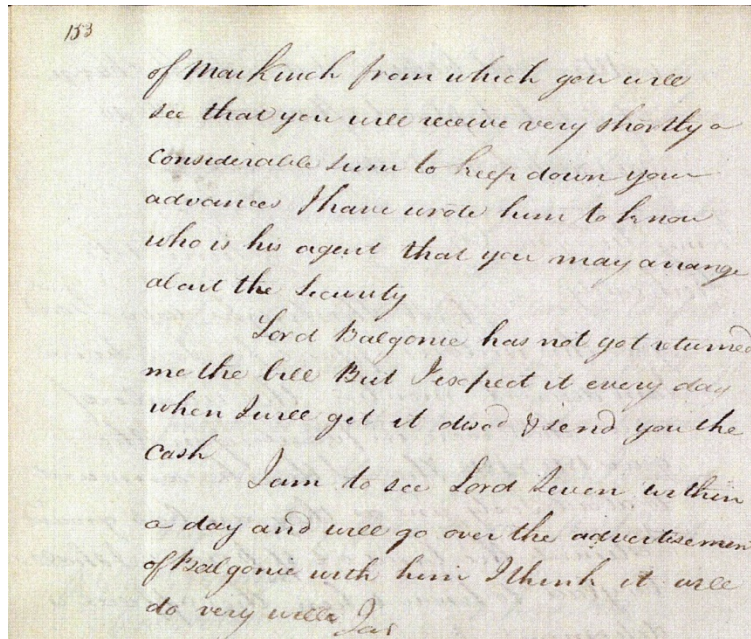 153
of Markinch from which you will
see that you will receive very shortly a
considerable sum to keep down your
advances I have wrote him to know
who is his agent that you may arrange
about the Security
Lord Balgonie has not yet returned
me the bill But I expect it every day
when I will get it discd & send you the
cash
I am to see Lord Leven within
a day and will go over the advertisemen
of Balgonie with him I think it will
do very well